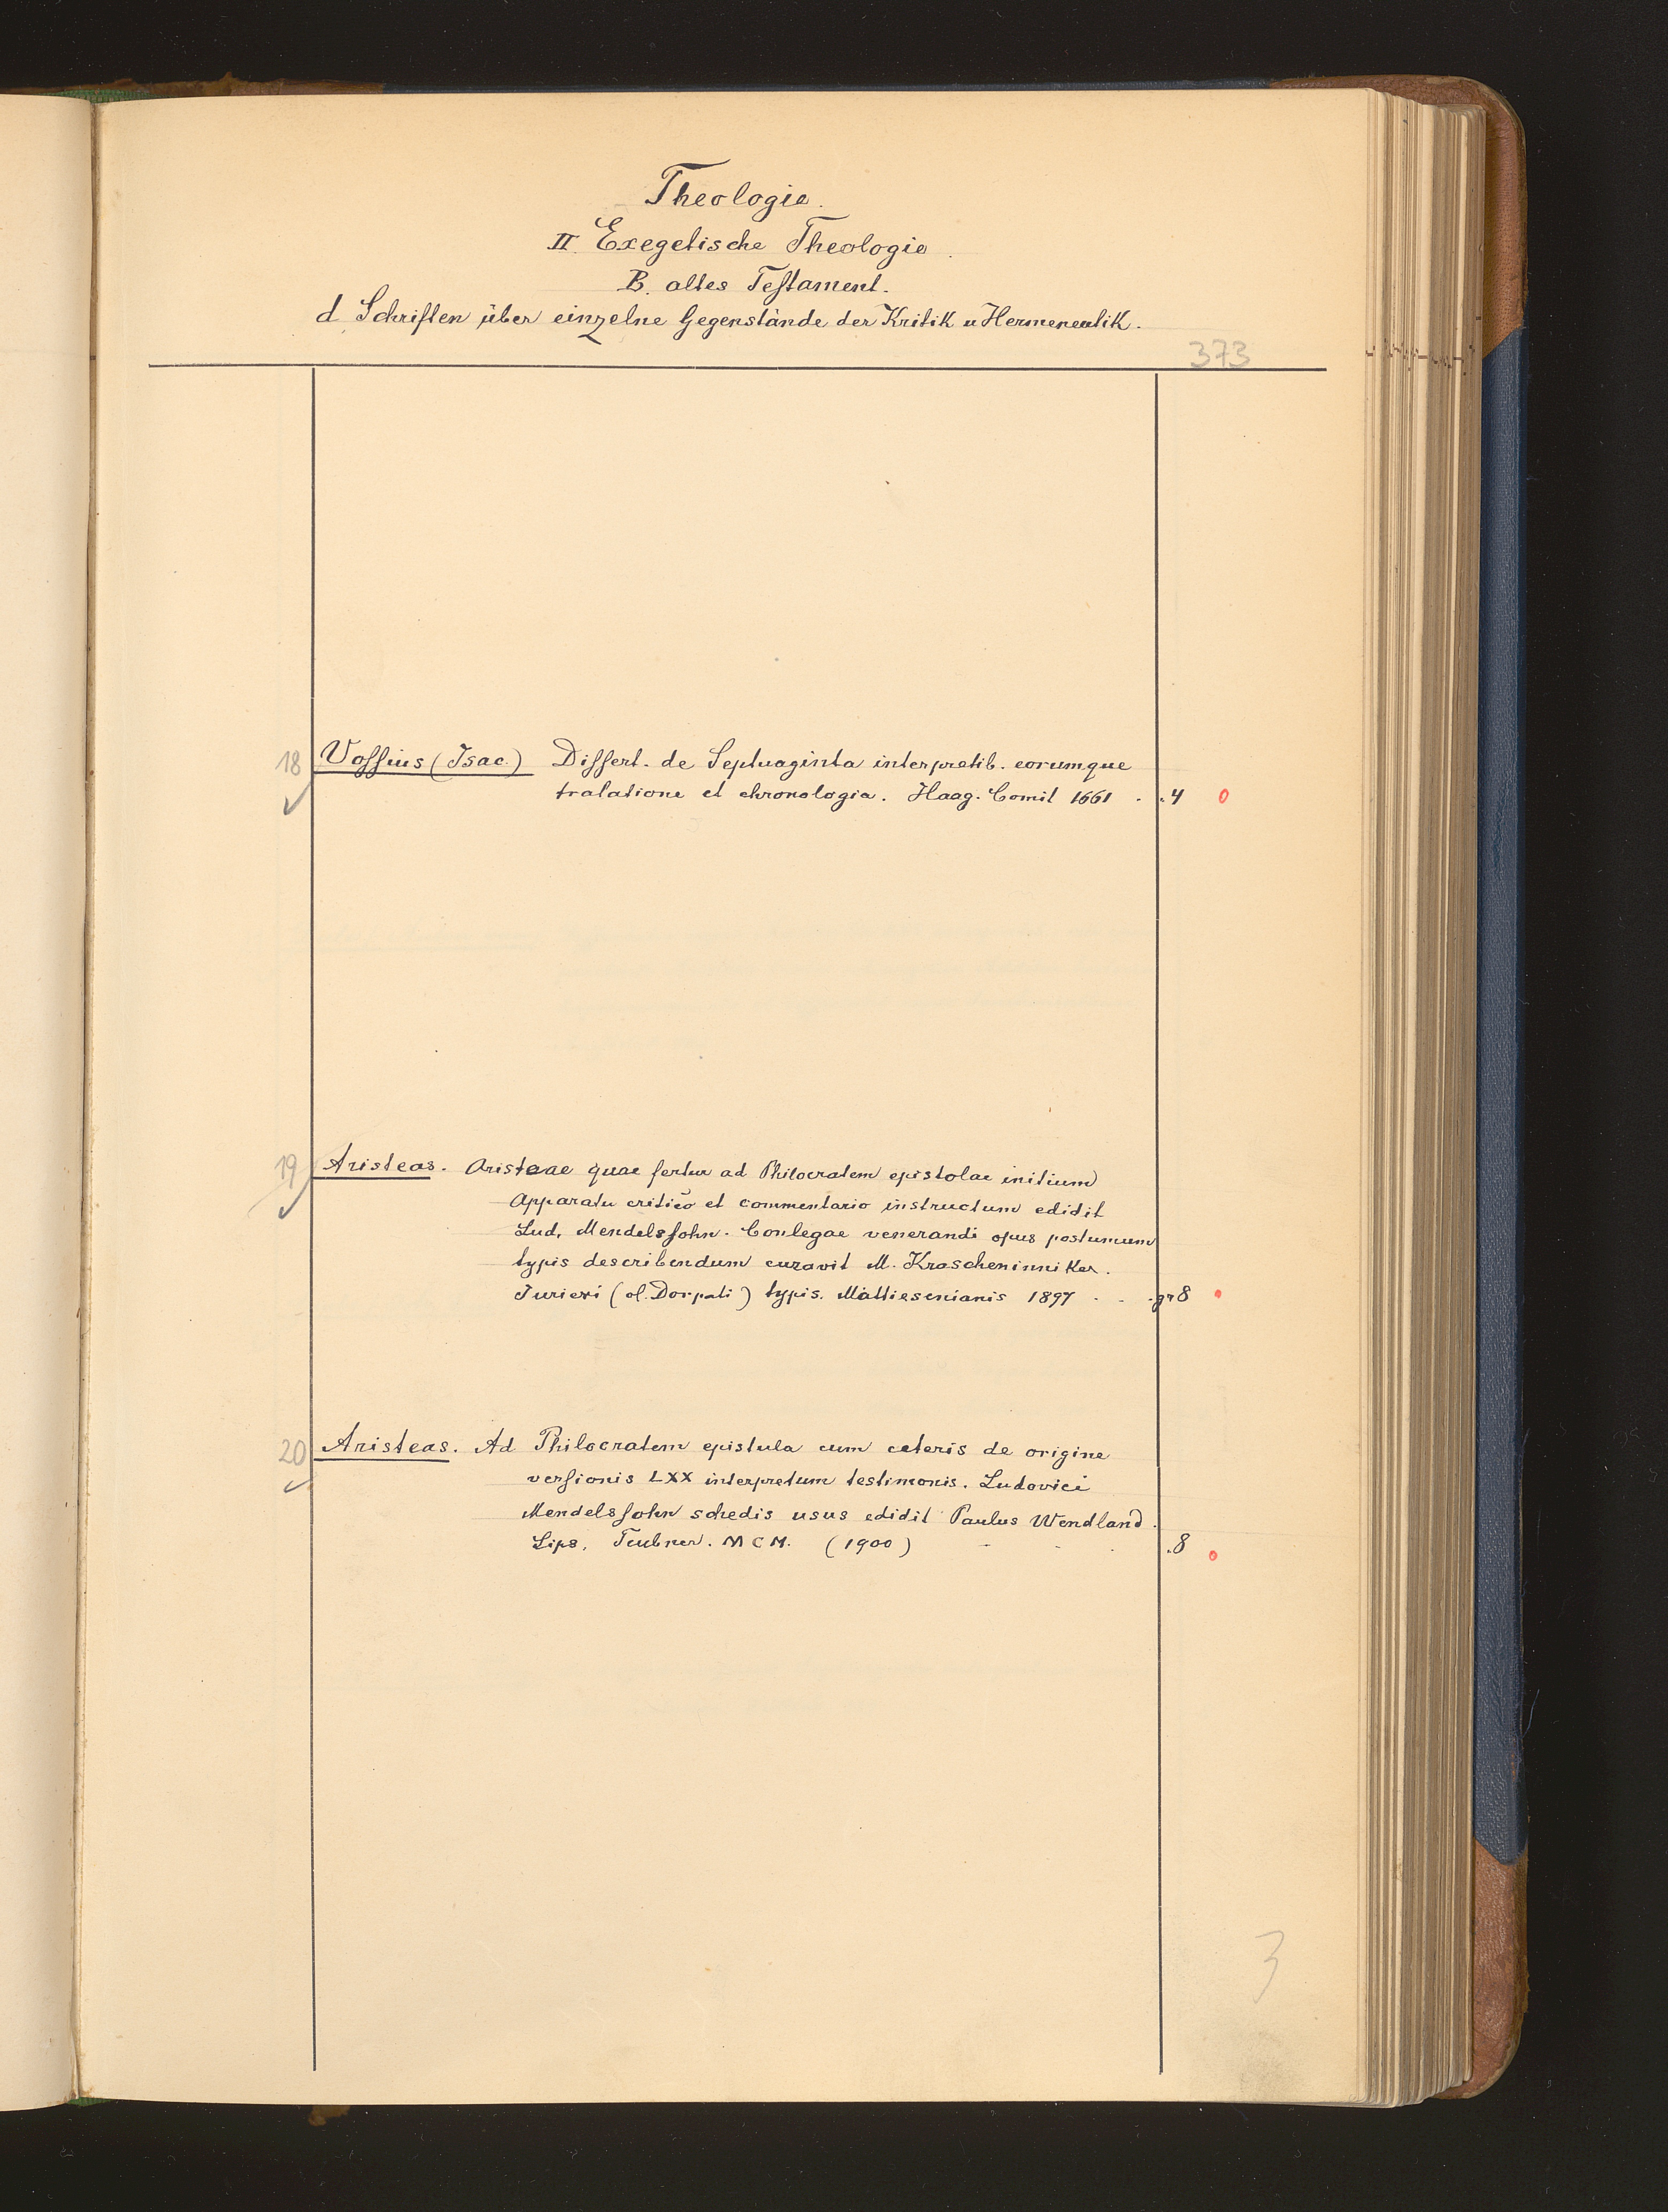 Theologie.
II. Exegetische Theologie.
B. altes Testament.
d Schriften über einzelne Gegenstände der Kritik u Hermeneutik.
373
18 Vossius (Isac.) Dissert. de Septuaginta interpretib. eorumque
tralatione et chronologia. Haag. Comit 1661 . . 4 0
19 Aristeas. Aristeae quae fertur ad Philocratem epistolae initium
Apparatu critico et commentario instructum edidit
Lud. Mendelssohn. Conlegae venerandi opus postumum
typis describendum curavit M. Krascheninniker.
Jurievi (ol. Dorpati) typis. Mattiesenianis 1897 . . . gr 8
20 Aristeas. Ad Philocratem epistula cum ceteris de origine
versionis LXX interpretum testimonis. Ludovici
Mendelssohn schedis usus edidit Paulus Wendland.
Lips. Teubner. MCM. (1900) . . . . 8 0
3